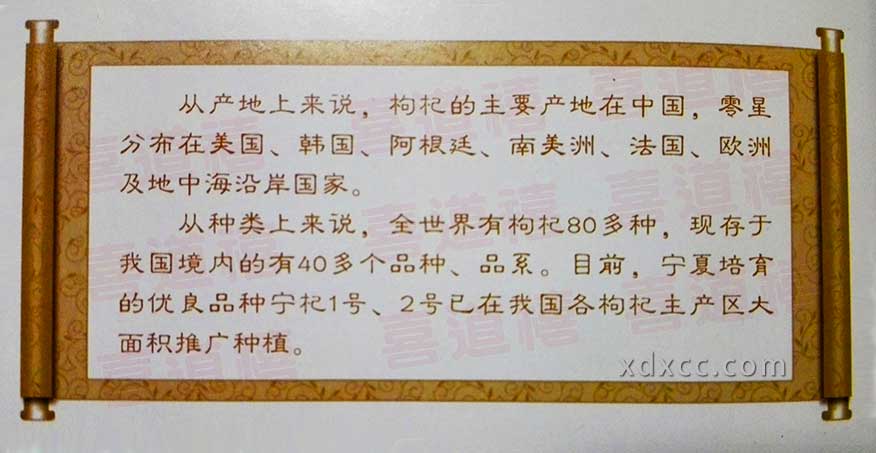 从产地上来说，枸杞的主要产地在中国，零星
分布在美国、韩国、阿根廷、南美洲、法国、欧洲
及地中海沿岸国家。
从种类上来说，全世界有枸杞80多种，现存于
我国境内的有40多个品种、品系。目前，宁夏培育
的优良品种宁杞1号、2号已在我国各枸杞主产区大
面积推广种植。
xdxcc.com
喜道禧
喜道禧
喜道禧
喜道禧
喜道禧
喜道禧
喜道禧
喜道禧
喜道禧